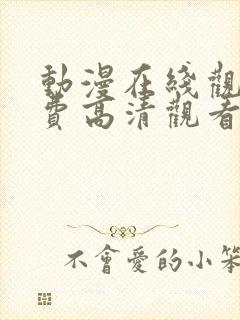 動漫在綫觀
費高清觀看
不會愛的小笨